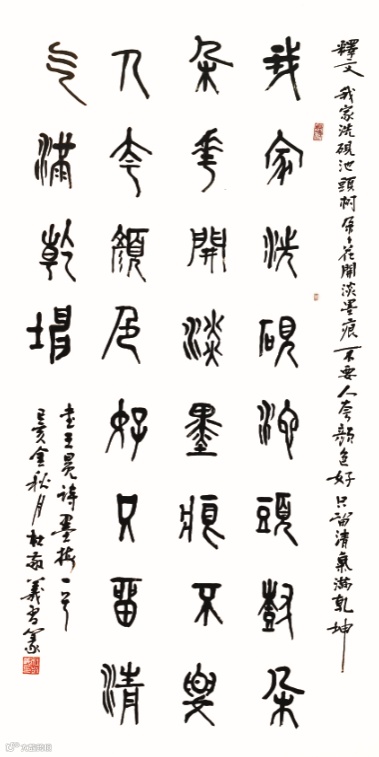 釋文 我家洗硯池頭树朵々花開淡墨痕 不要人夸顏色好 只留清氣滿乾坤
我家洗硯池頭尌朵
朵華開淡墨痕不要
人夸顏色好只留清
气滿乾坤
书王冕诗墨梅一首
己亥金秋月杜敬義書篆